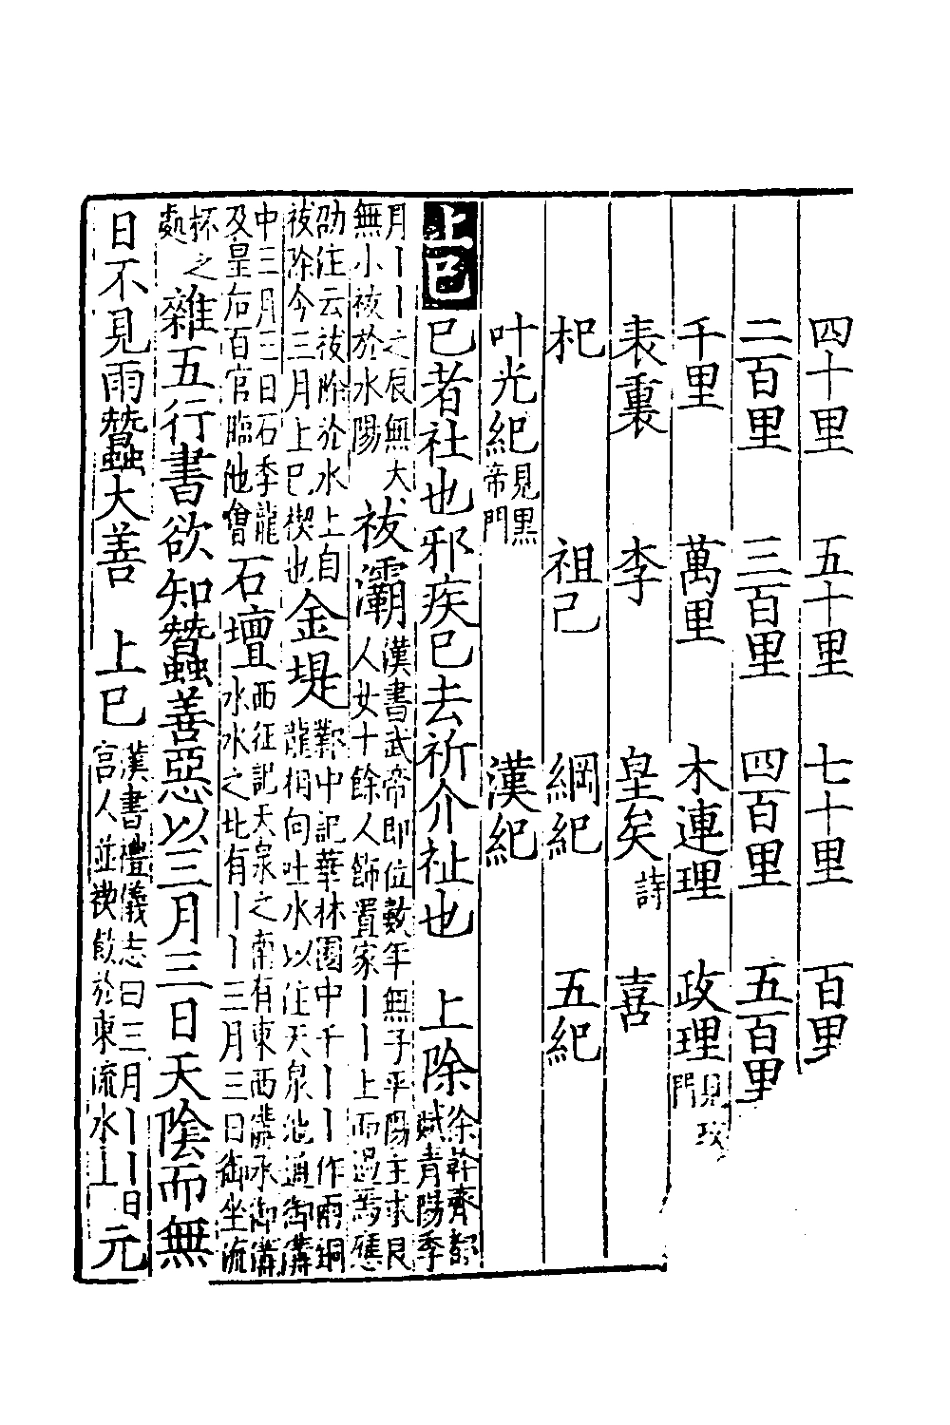 四十里　五十里　七十里　百里
二百里　三百里　四百里　五百里
千里　萬里　木連理　政理見政門
表裏　李　皇矣詩　喜
杞　祖己　綱紀　五紀
叶光紀見黑帝門　漢紀
上巳　巳者社也邪疾巳去祈介祉也　上除徐幹齊都賦青陽季
月丨丨之辰無大無小祓於水陽　祓灞漢書武帝即位數年無子平陽主求良人女十餘人飾置家丨丨上而過焉應
劭注云祓除於水上自祓除今三月上巳禊也　金堤鄴中記華林園中千丨丨作兩銅龍相向吐水以注天泉池通御溝
中三月三日石季龍及皇后百官臨池會　石壇西征記天泉之南有東西溝承御溝水水之北有丨丨三月三日御坐流
杯之處　雜五行書欲知蠶善惡以三月三日天陰而無
日不見雨蠶大善　上巳漢書禮儀志曰三月丨丨日宮人並禊飲於東流水上　元